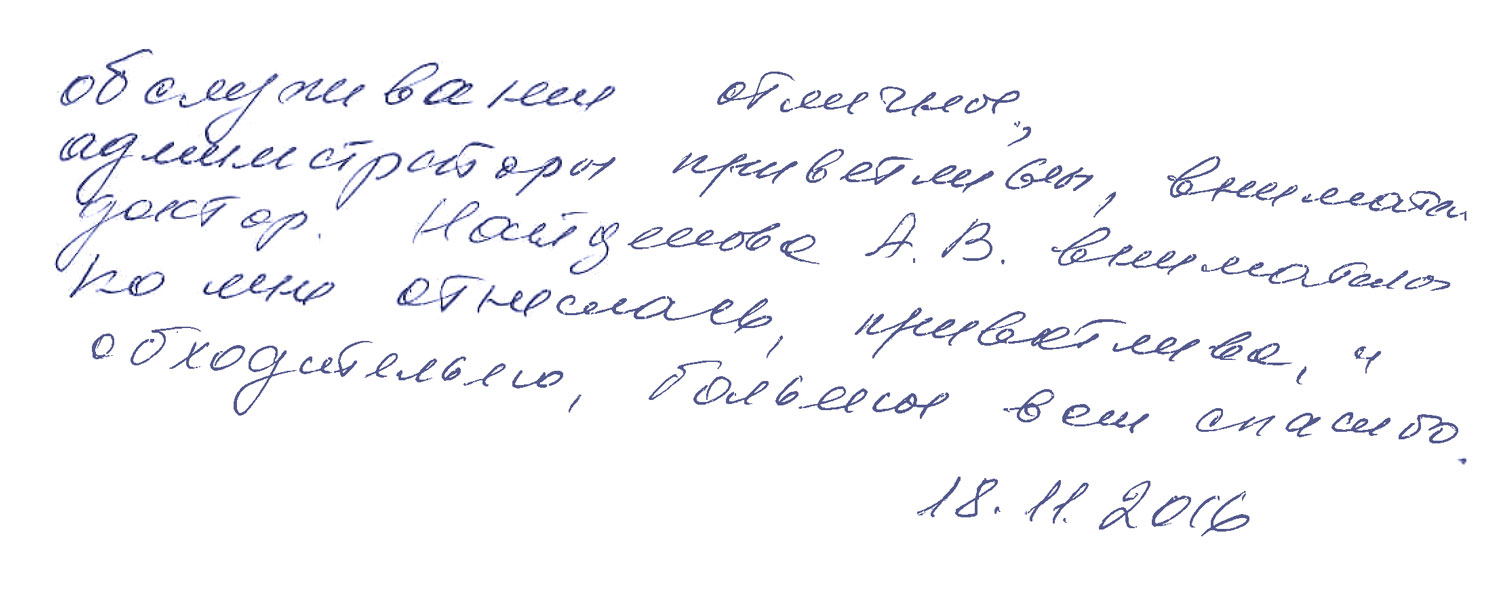 обслуживани отличное,
администраторы приветливы, внимател
доктор. Найденова А. В. внимательно
ко мне отнеслась, приветлива, и
обходительно, большое вам спасибо.
18.11.2016